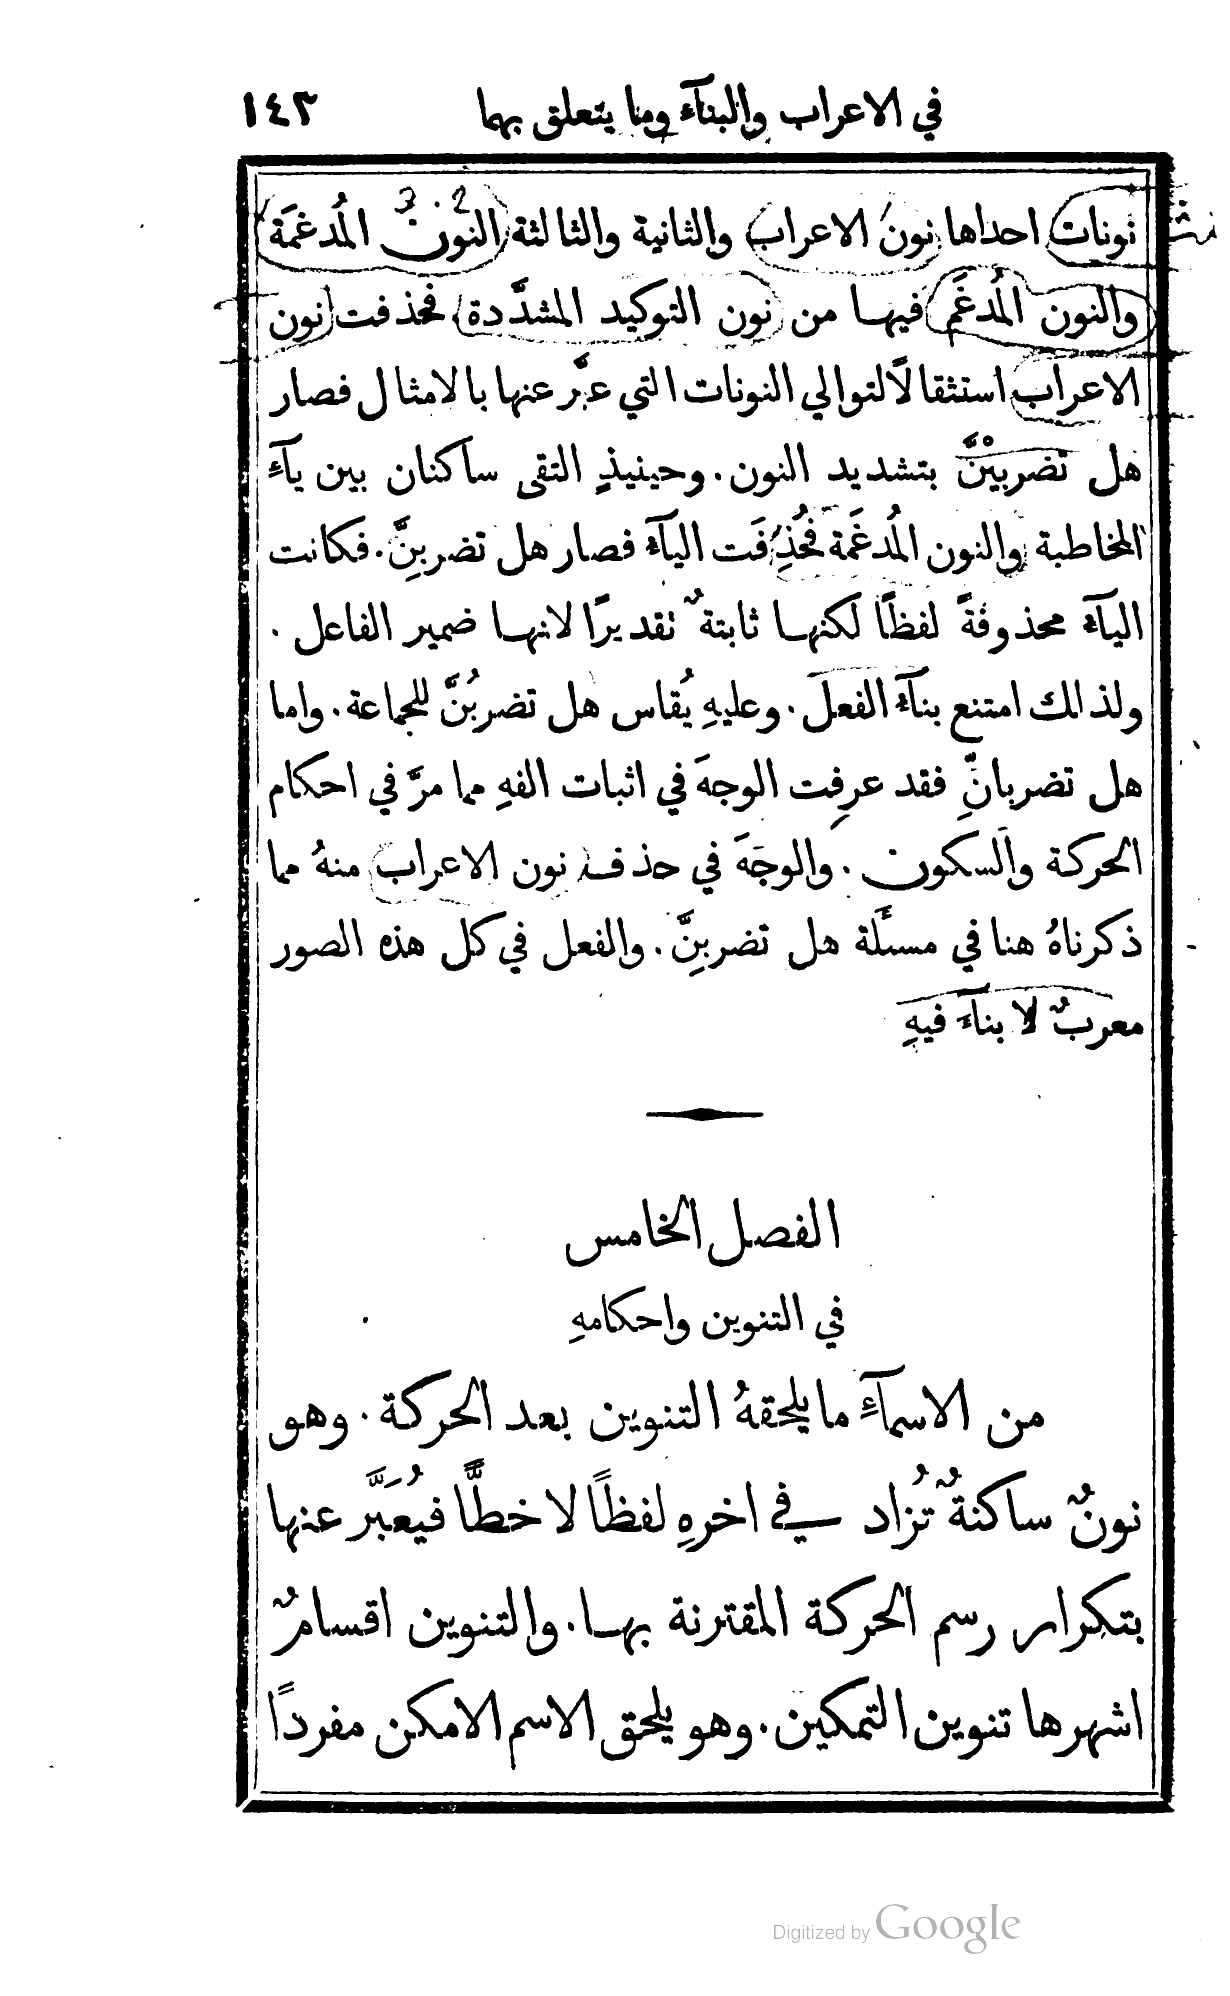 في الاعراب والبنآء وما يتعلق بهما ١٤٣
نونات احداها نون الاعراب والثانية والثالثة النُون المُدغمَة
والنون المُدغَم فيها من نون التوكيد المشدَّدة فحُذفت نون
الاعراب استثقالًا لتوالي النونات التي عبَّر عنها بالامثال فصار
هل تضربيْنَّ بتشديد النون. وحينيذٍ التقى ساكنان بين يآءِ
المخاطبة والنون المُدغَمة فحُذِفَت اليآء فصار هل تضربِنَّ. فكانت
اليآء محذوفةً لفظًا لكنها ثابتةٌ تقديرًا لانها ضمير الفاعل .
ولذلك امتنع بنآء الفعل. وعليهِ يُقاس هل تضربُنَّ للجماعة. واما
هل تضربانِّ فقد عرفت الوجهَ في اثبات الفهِ مما مرَّ في احكام
الحركة والسكون . والوجهَ في حذف نون الاعراب منهُ مما
ذكرناهُ هنا في مسئَلة هل تضربِنَّ. والفعل في كل هذه الصور
معربٌ لا بنآءَ فيهِ
الفصل الخامس
في التنوين واحكامهِ
من الاسمآءِ ما يلحقهُ التنوين بعد الحركة . وهو
نونٌ ساكنةٌ تُزاد في اخرهِ لفظًا لا خطًّا فيُعَبَّر عنها
بتكرار رسم الحركة المقترنة بها. والتنوين اقسامٌ
اشهرها تنوين التمكين. وهو يلحق الاسم الامكن مفردًا
Digitized by Google